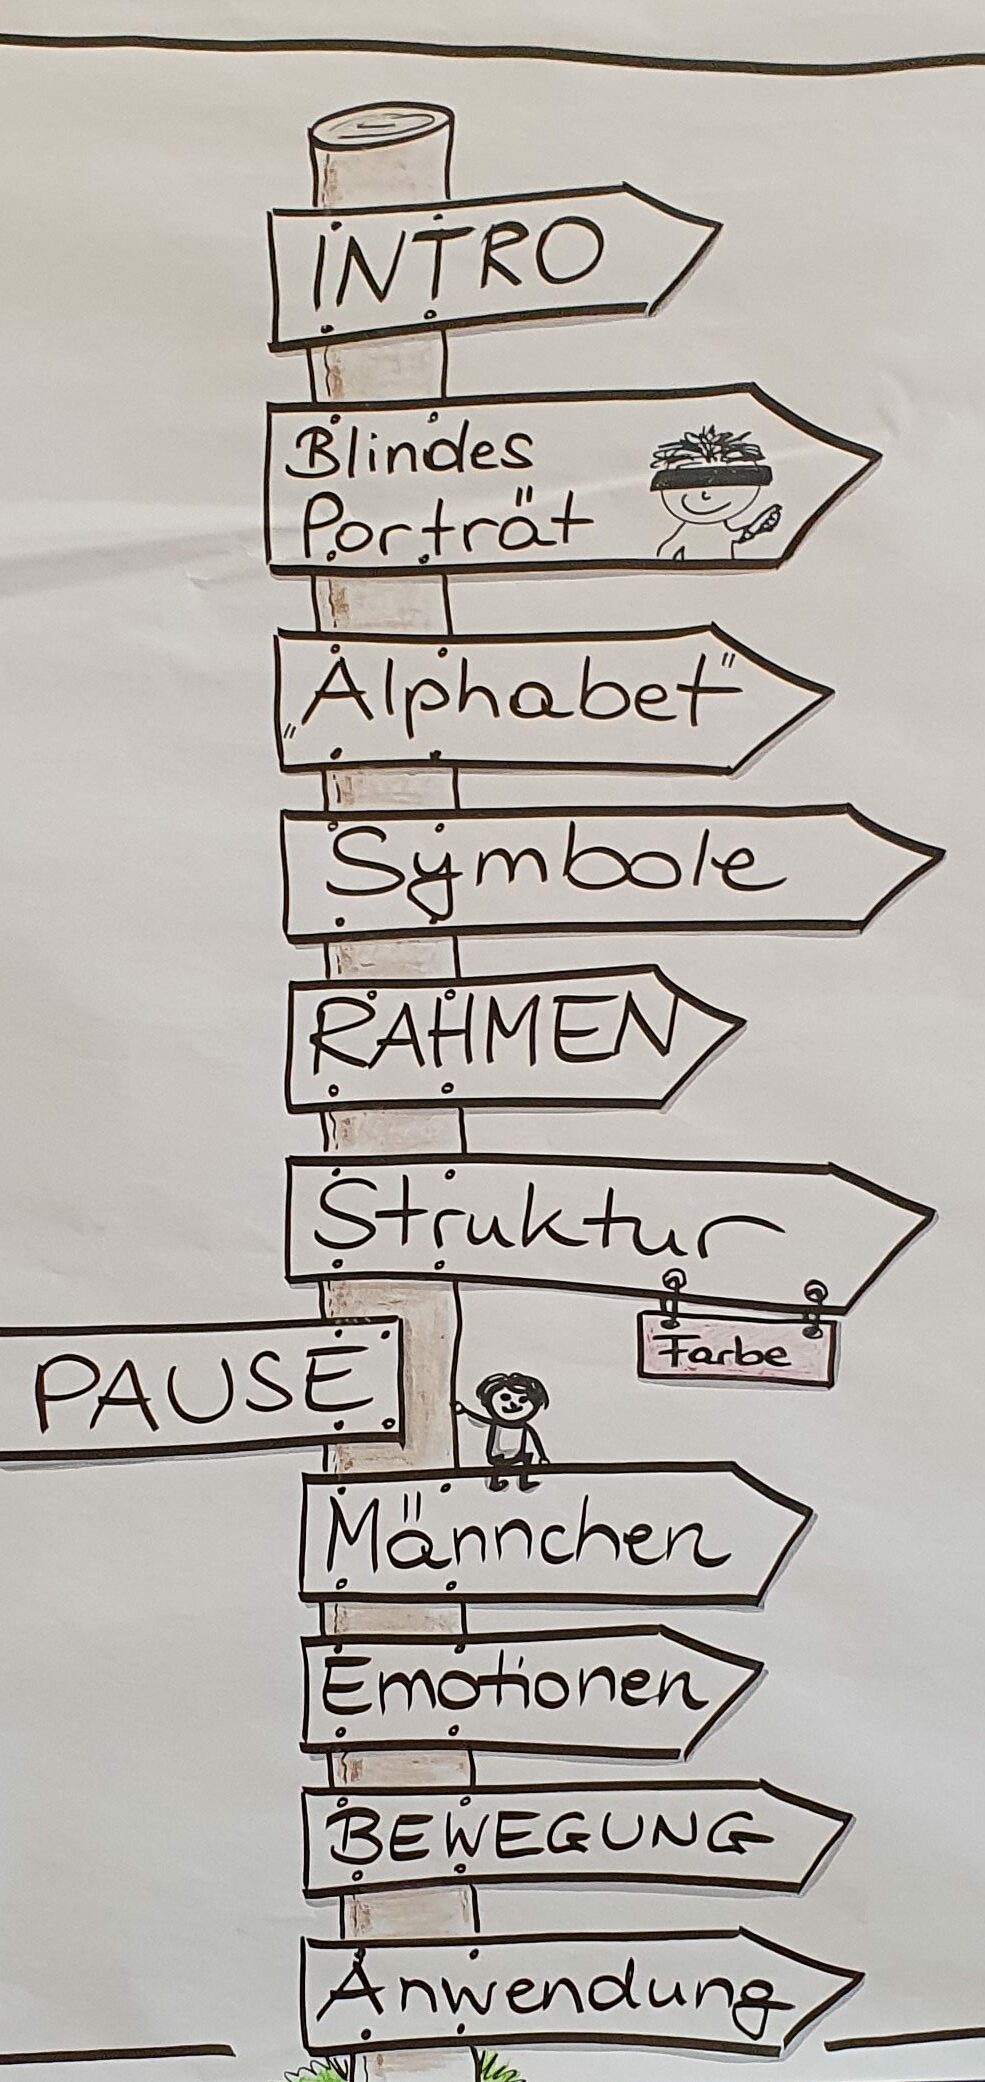 INTRO
Blindes
Porträt
„Alphabet"
Symbole
RAHMEN
Struktur
Farbe
PAUSE
Männchen
Emotionen
BEWEGUNG
Anwendung